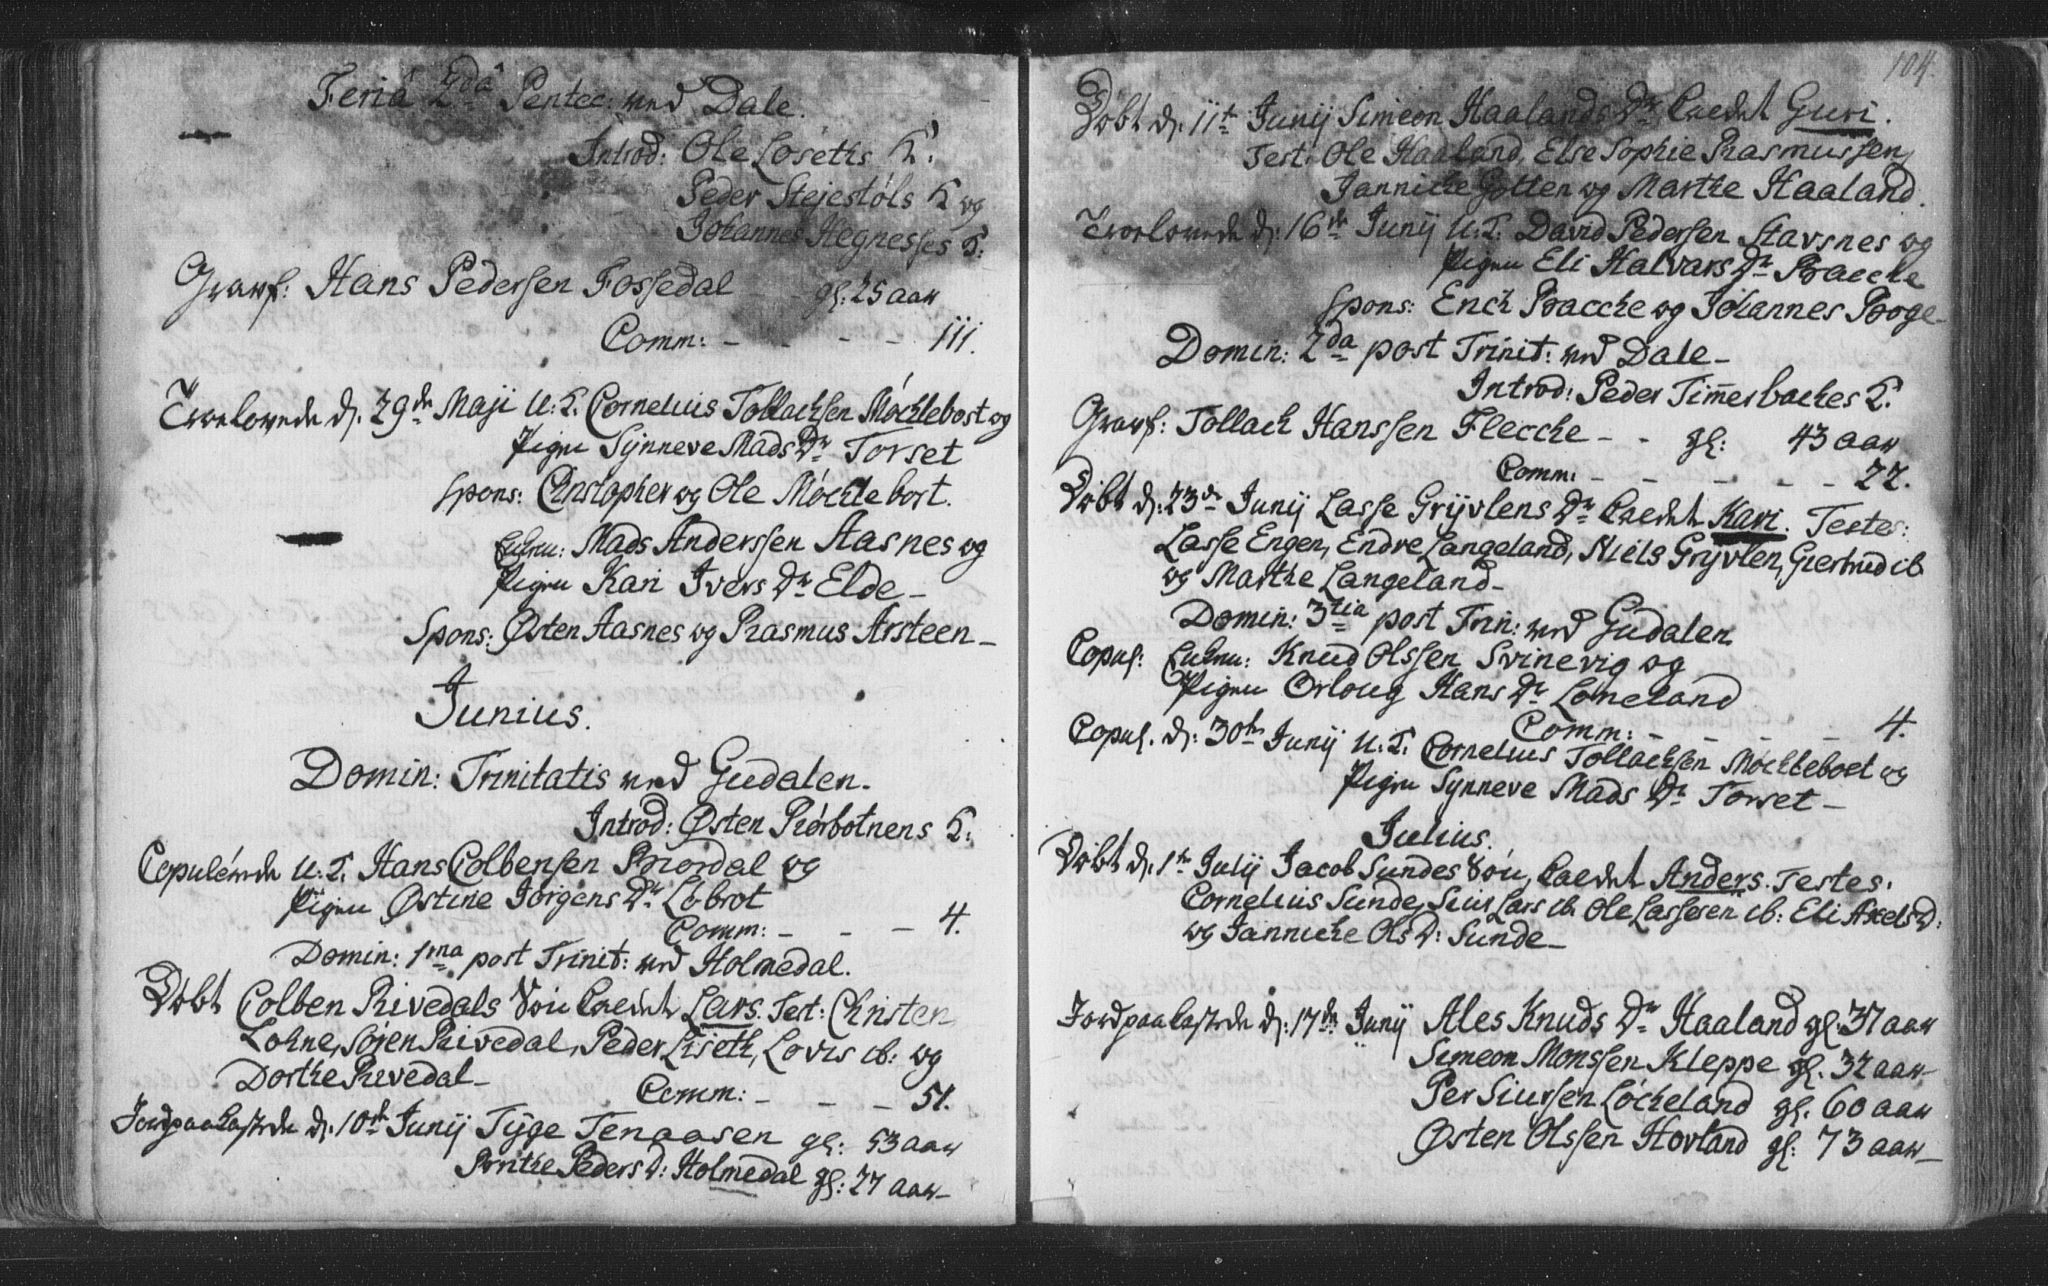 Feriâ 2dâ Pentec: ved Dale.
Introd: Ole Løseths K:
Peder Stejestøls K og
Johannes Hegnesses K:
Gravf: Hans Pedersen Fossedal - - gl: 25 aar
Comm: - - - - 111.
Troelovede d. 29de Maji U: K. Cornelius Tollachsen Møchlebost og
Pigen Synneve Mads Dr Torset
Spons: Christopher og Ole Møchlebost.
Enken: Mads Anderssen Aasnes og
Pigen Kari Ivers Dr Elde -
Spons: Østen Aasnes og Rasmus Arsteen -
Junius.
Domin: Trinitatis ved Gudalen.
Introd: Østen Rørbotnens K:
Copulérede U: K. Hans Colbensen Nordal og
Pigen Østine Jørgens Dr Løbrot
Comm: - - - 4.
Domin: 1ma post Trinit: ved Holmedal.
Døbt Colben Rivedals Søn Kaldet Lars. Test: Christen
Lohne, Søjen Rivedal, Peder Liseth, Lovis ib: og
Dorthe Rivedal -
Comm: - - - 51.
Jordpaakastede d: 10de Junij Tyge Tenaasen gl: 53 aar
Brithe Peders D: Holmedal gl: 27 aar -
104.
Døbt d. 11te Junij Simeon Haalands Dr Kaldet Guri.
Test: Ole Haaland, Else Sophie Rasmussen,
Jannicke Gotten og Marthe Haaland.
Troelovede d: 16de Junij U: K. David Pedersen Stavsnes og
Pigen Eli Halvars Dr Bracche
Spons: Erich Bracche og Johannes Boge -
Domin: 2da post Trinit: ved Dale -
Introd: Peder Tim̅erbackes K:
Gravf: Tollach Hanssen Flecche - - gl: 43 aar
Comm: - - - - - 22.
Døbt d: 23de Junij Lasse Gryvlens Dr Kaldet Kari. Testes:
Lasse Engen, Endre Langeland, Niels Gryvlen, Giertrud ib
og Marthe Langeland -
Domin: 3tia post Trin: ved Gudalen
Copul: Enken: Knud Olssen Svinevig og
Pigen Orloug Hans Dr Løneland
Comm: - - - - 4.
Copul. d: 30te Junij U: K. Cornelius Tollachsen Møchlebost og
Pigen Synneve Mads Dr Torset -
Julius.
Døbt d: 1te Julij Jacob Sundes Søn, Kaldet Anders. Testes.
Cornelius Sunde, Siur Lars ib. Ole Lassesen ib: Eli Axels D:
og Jannicke Ols D: Sunde -
Jordpaakastede d: 17de Junij Ales Knuds Dr Haaland gl: 37 aar
Simeon Monssen Kleppe gl. 32 aar -
Per Siurssen Løcheland gl. 60 aar
Østen Olssen Hovland gl: 73 aar -